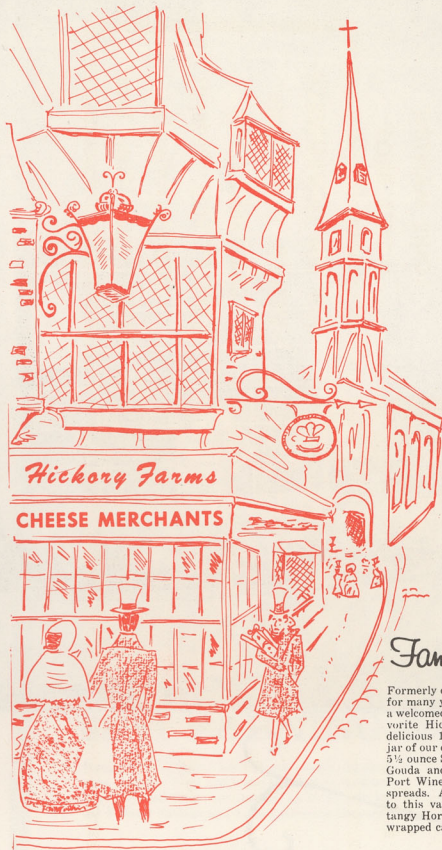 Hickory Farms
CHEESE MERCHANTS
Formerly
for many
a welcomed
vorite Hic
delicious
jar of our
5½ ounce
Gouda and
Port Wine
spreads. A
to this va
tangy Hor
wrapped c